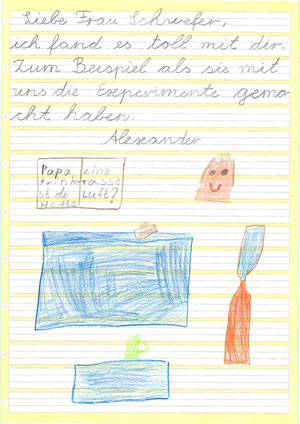 Liebe Frau Schwefer,
ich fand es toll mit dir.
Zum Beispiel als sie mit
uns die Experimente gema-
cht haben.
Alexander
Papa eine
trink Tasse
st du Luft?